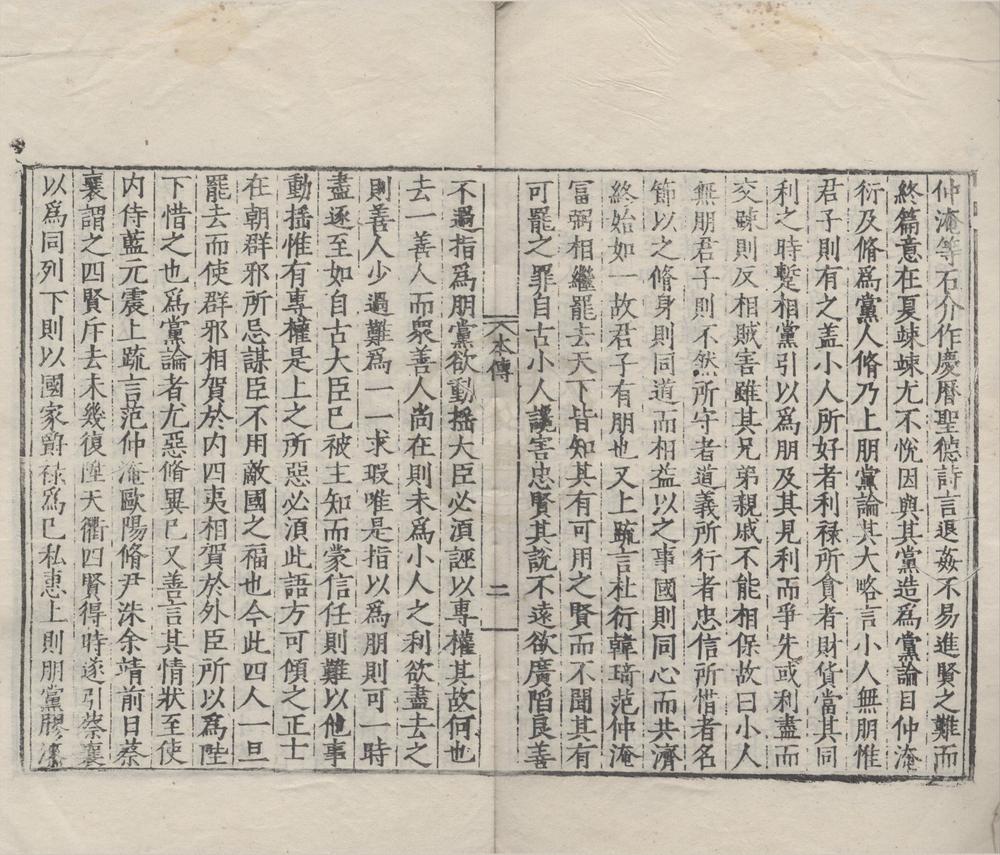 仲淹等石介作慶曆聖德詩言退姦不易進賢之難而
終篇意在夏竦竦尤不恱因與其黨造爲黨論目仲淹
衍及脩爲黨人脩乃上朋黨論其大略言小人無朋惟
君子則有之盖小人所好者利禄所貪者財貨當其同
利之時蹔相黨引以爲朋及其見利而爭先或利盡而
交踈則反相賊害雖其兄弟親戚不能相保故曰小人
無朋君子則不然所守者道義所行者忠信所惜者名
節以之脩身則同道而相益以之事國則同心而共濟
終始如一故君子有朋也又上䟽言杜衍韓琦范仲淹
富弼相繼罷去天下皆知其有可用之賢而不聞其有
可罷之罪自古小人讒害忠賢其說不遠欲廣陷良善
本傳
二
不過指爲朋黨欲動揺大臣必湏誣以專權其故何也
去一善人而衆善人尚在則未爲小人之利欲盡去之
則善人少過難爲一一求瑕唯是指以爲朋則可一時
盡逐至如自古大臣已被主知而蒙信任則難以他事
動揺惟有專權是上之所惡必湏此語方可傾之正士
在朝群邪所忌謀臣不用敵國之福也今此四人一旦
罷去而使群邪相賀於内四夷相賀於外臣所以爲陛
下惜之也爲黨論者尤惡脩異已又善言其情狀至使
内侍藍元震上䟽言范仲淹歐陽脩尹洙余靖前日蔡
襄謂之四賢斥去未幾復陞天衢四賢得時遂引蔡襄
以爲同列下則以國家爵禄爲已私惠上則朋黨膠